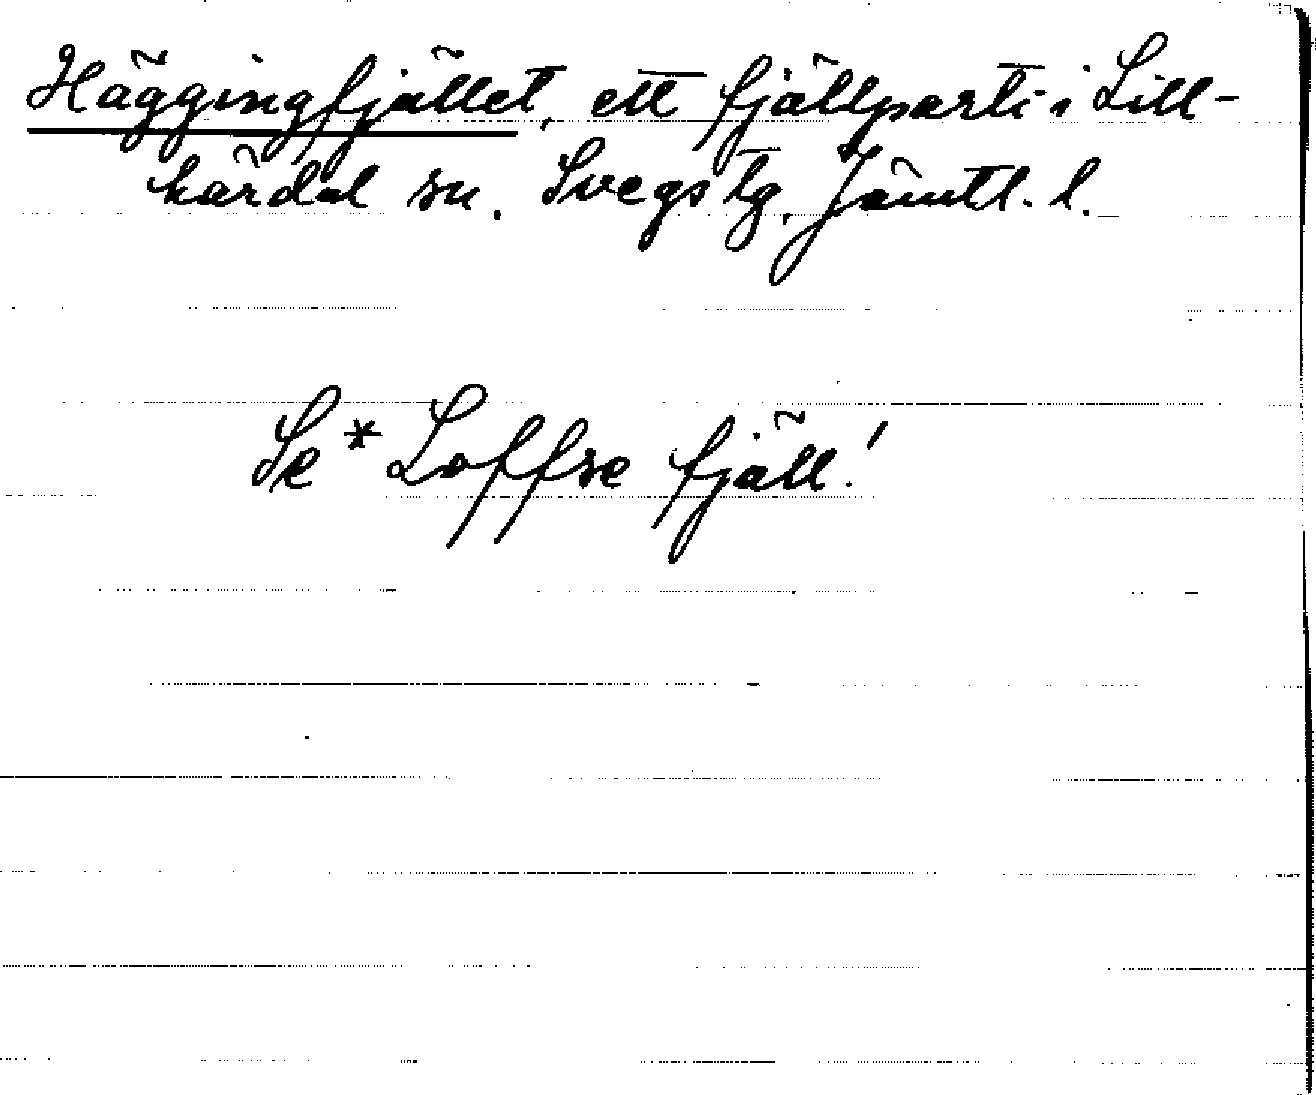 Häggingfjället, ett fjällparti i Lill-
härdal sn. Svegs tg. Jämtl. l.
Se *Loffse fjäll!